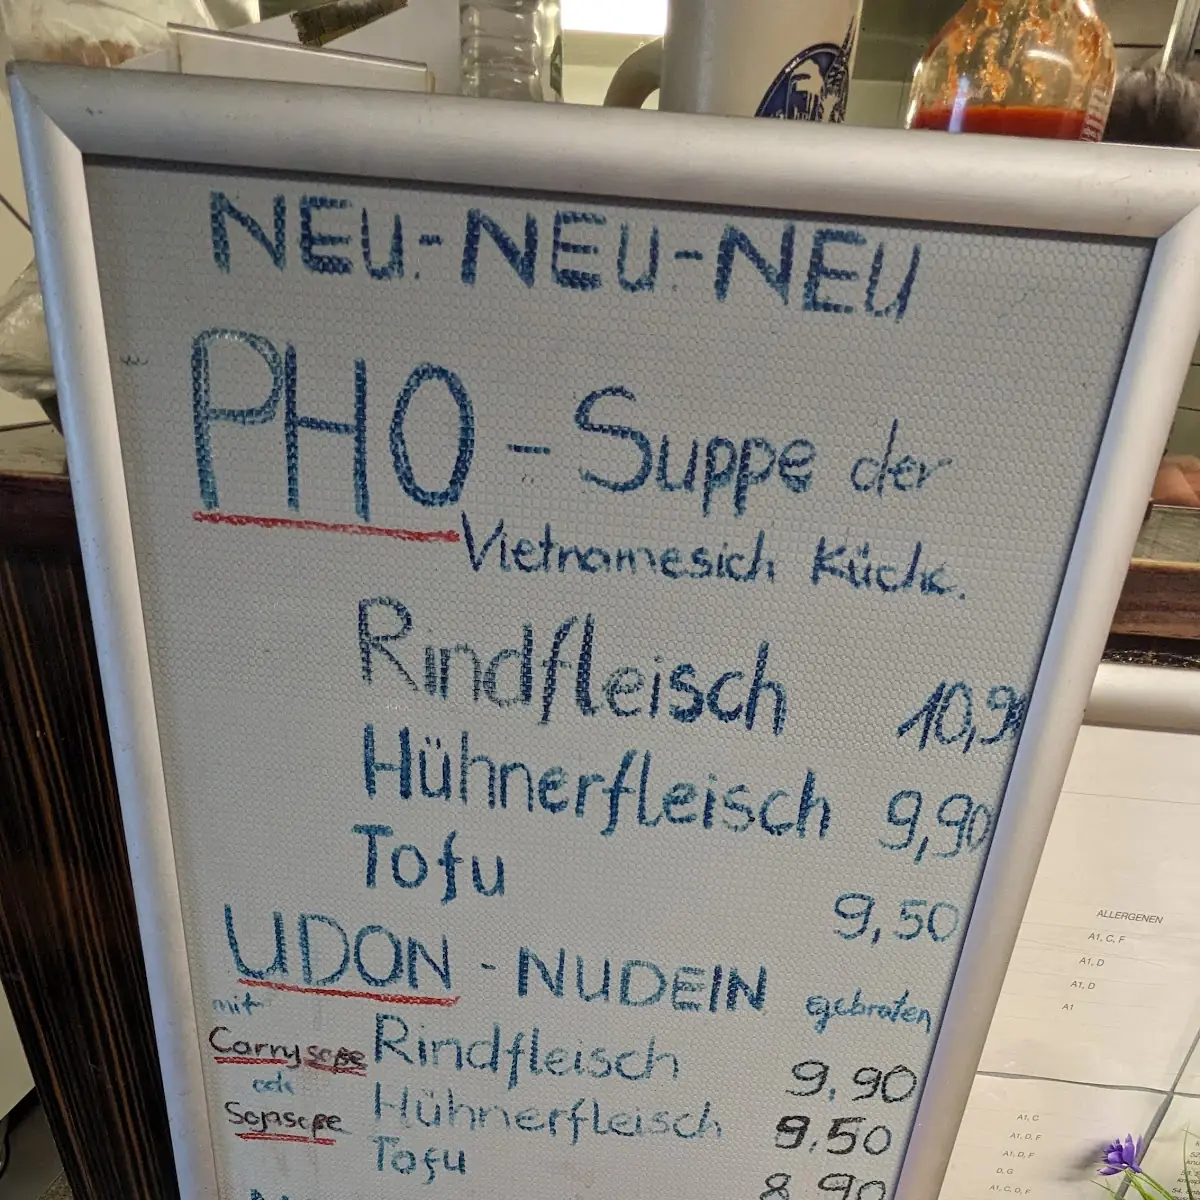 NEU-NEU-NEU
PHO - Suppe der
Vietnamesich Küche.
Rindfleisch 10,90
Hühnerfleisch 9,90
Tofu 9,50
UDON - NUDEIN gebraten
mit
Carrysoße Rindfleisch 9,90
ode
Sojasoße Hühnerfleisch 9,50
Tofu 8,90
ALLERGENEN
A1, C, F
A1, D
A1, D
A1
A1, C
A1, D, F
A1, D, F
D, G
A1, C, D, F